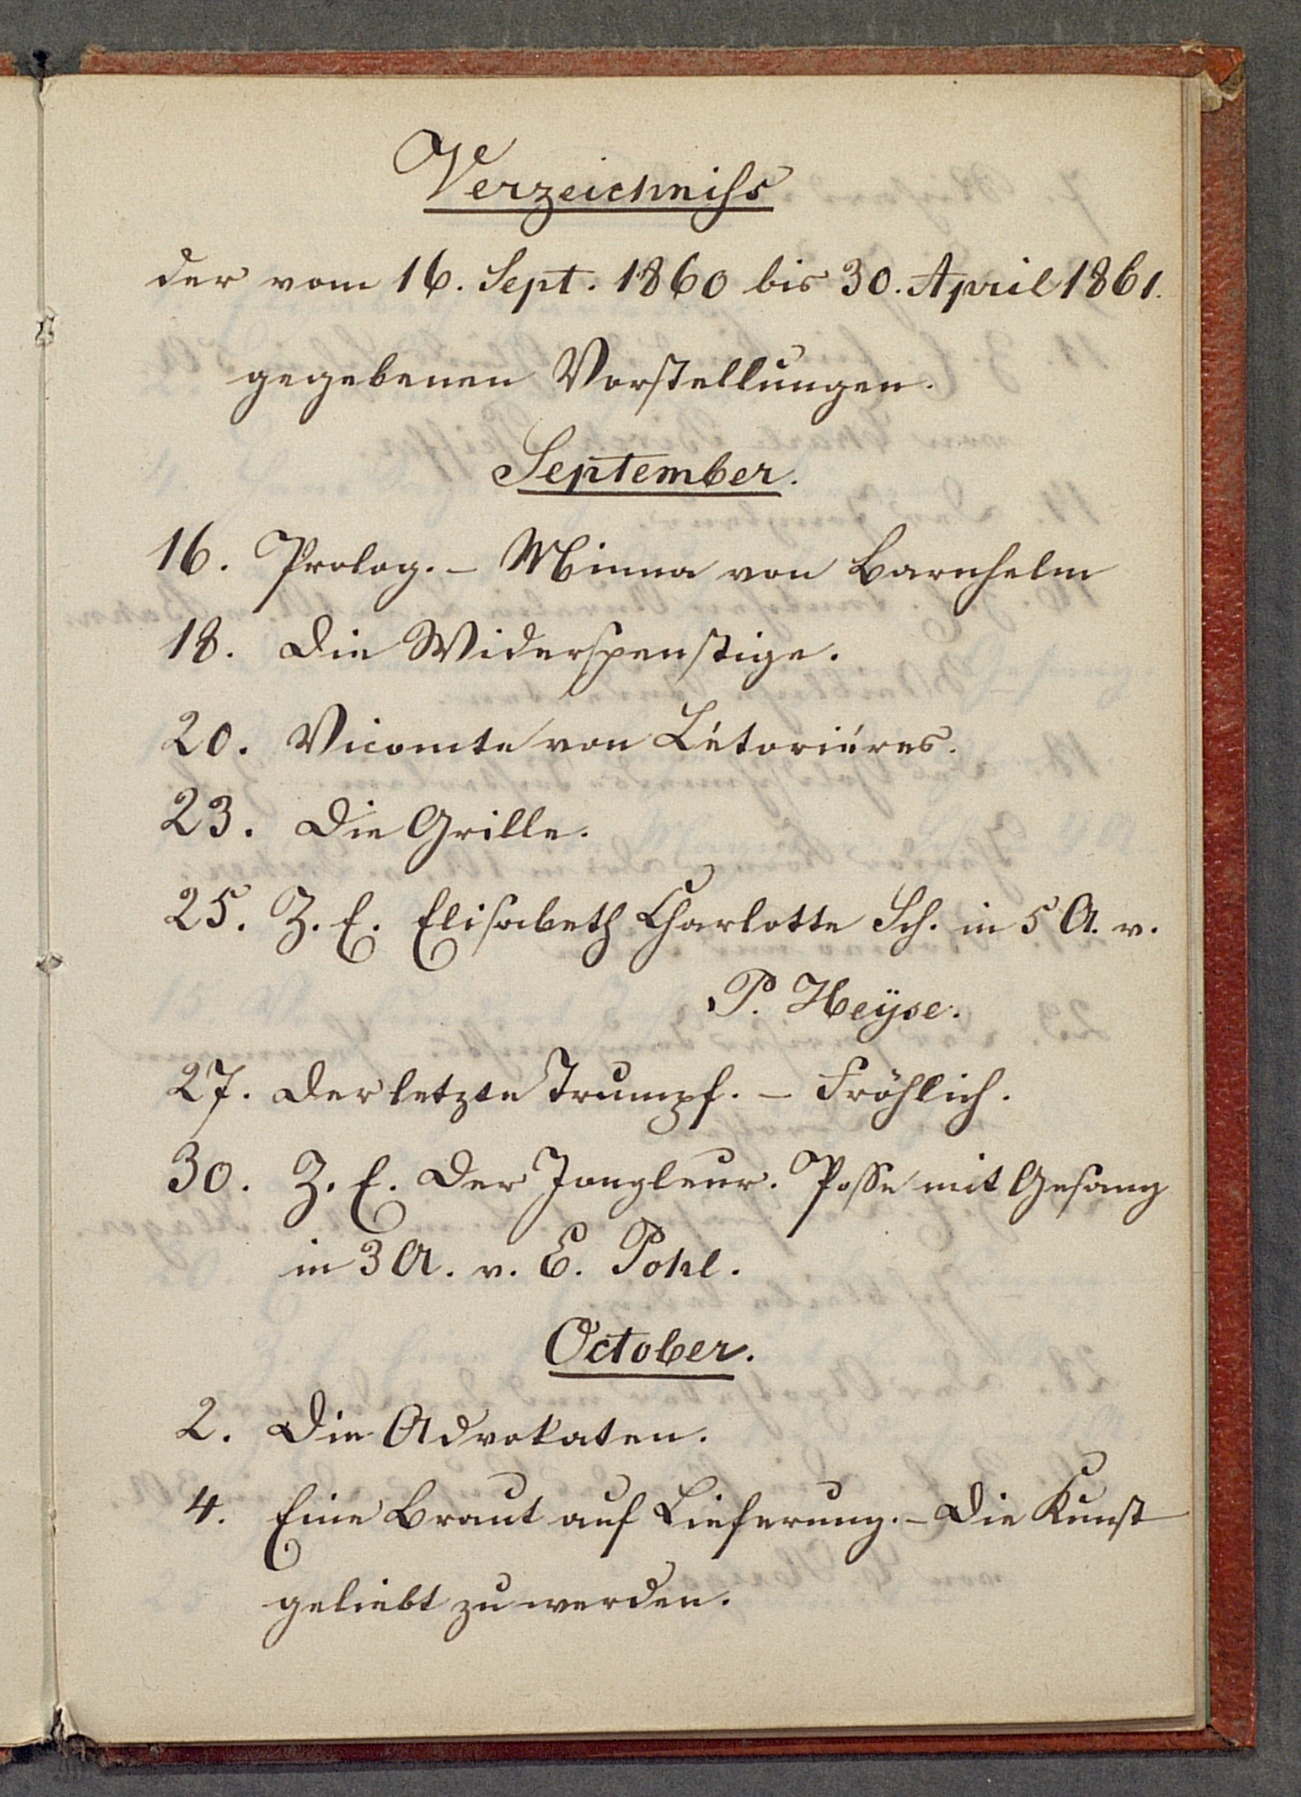 Verzeichniss
der vom 16. Sept. 1860 bis 30. April 1861.
gegebenen Vorstellungen.
September.
16. Prolog. – Minna von Barnhelm
18. Die Widerspenstige.
20. Vicomte von Létoriéres.
23. Die Grille.
25. Z. E. Elisabeth Charlotte Sch. in 5 A. v.
P. Heÿse.
27. Der letzte Trumpf. – Fröhlich.
30. Z. E. Der Jongleur. Posse mit Gesang
in 3 A. v. E. Pohl.
October.
2. Die Advokaten.
4. Eine Braut auf Lieferung. – Die Kunst
geliebt zu werden.